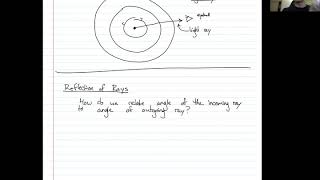 eyeball
light ray
Reflection of Rays
How do we relate angle of the incoming ray
to angle of outgoing ray?